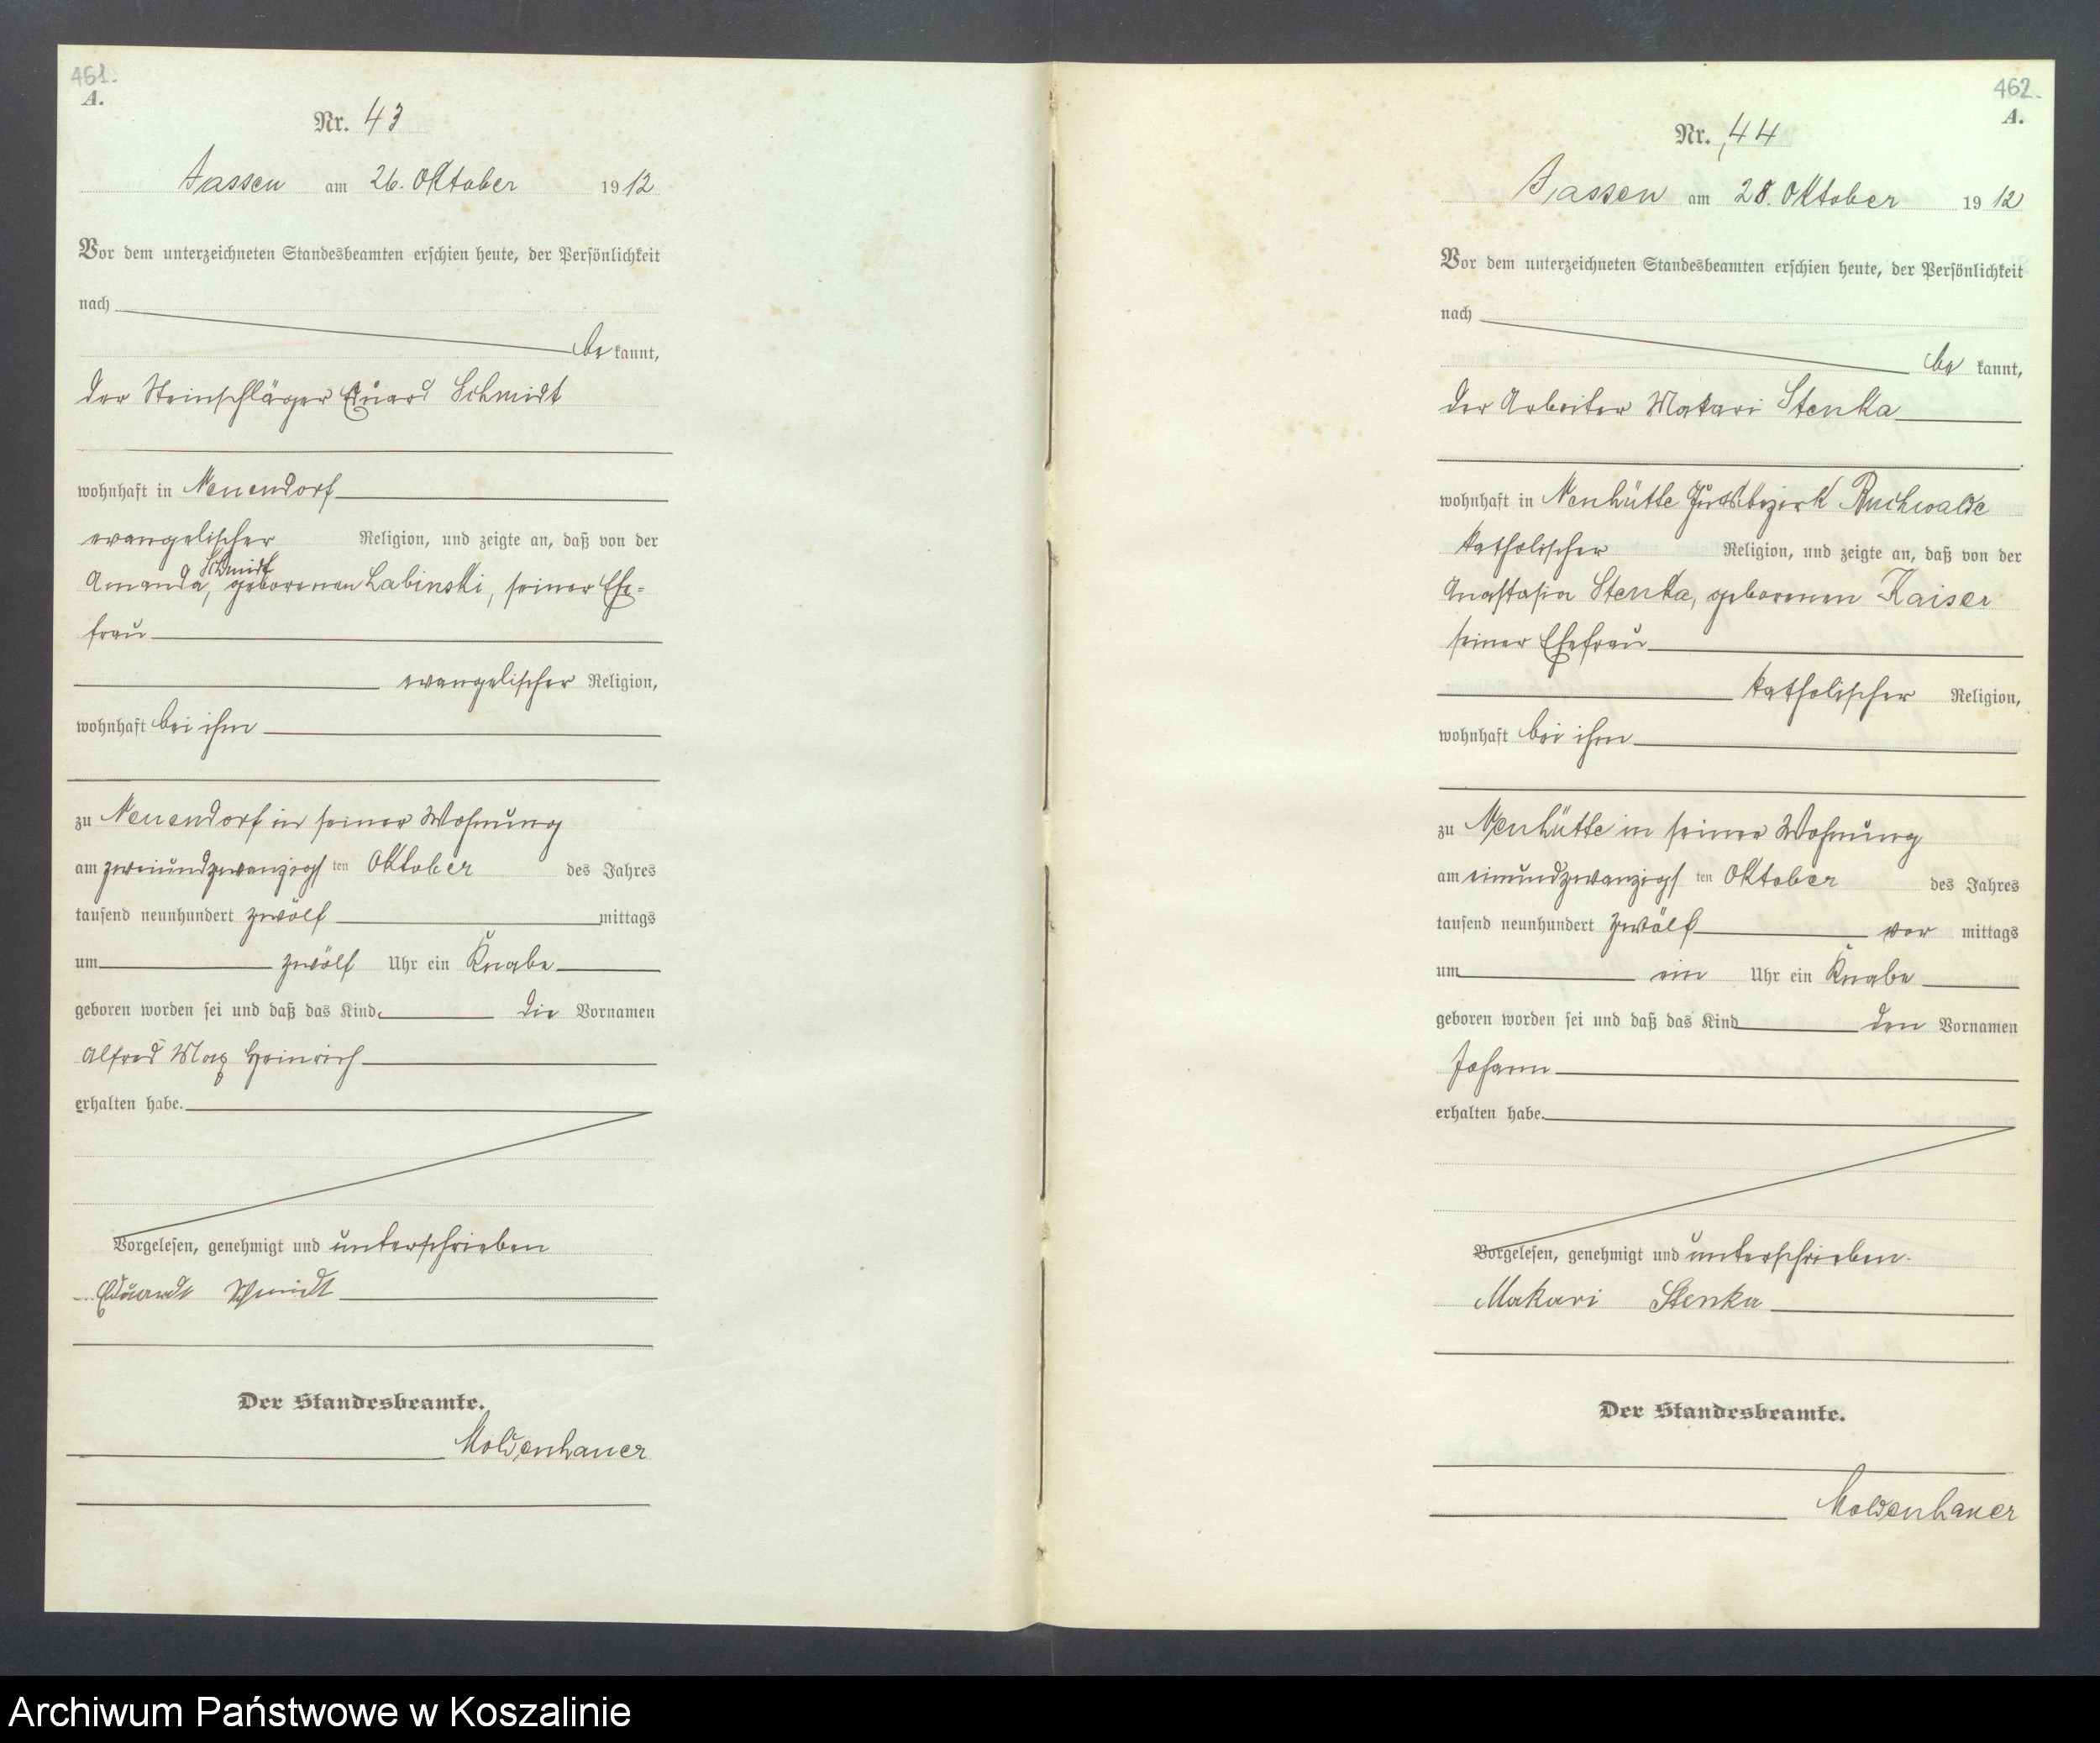 461.
A.
Nr. 43
Jassen am 26. Oktober 1912
Vor dem unterzeichneten Standesbeamten erschien heute, der Persönlichkeit
nach
be kannt,
der Steinschläger Eduard Schmidt
wohnhaft in Neuendorf
evangelischer Religion, und zeigte an, daß von der
Schmidt
Amanda, geborenen Labinski, seiner Ehe-
frau
evangelischer Religion,
wohnhaft bei ihm
zu Neuendorf in seiner Wohnung
am zweiundzwanzigsten Oktober des Jahres
tausend neunhundert zwölf mittags
um zwölf Uhr ein Knabe
geboren worden sei und daß das Kind die Vornamen
Alfred Max Heinrich
erhalten habe.
Vorgelesen, genehmigt und unterschrieben
Eduardt Schmidt
Der Standesbeamte.
Moldenhauer
462.
A.
Nr. 44
Jassen am 28. Oktober 1912
Vor dem unterzeichneten Standesbeamten erschien heute, der Persönlichkeit
nach
be kannt,
der Arbeiter Makari Stenka
wohnhaft in Neuhütte Buchwalde
katholischer Religion, und zeigte an, daß von der
Anastasia Stenka, geborenen Kaiser
seiner Ehefrau
katholischer Religion,
wohnhaft bei ihm
zu Neuhütte in seiner Wohnung
am einundzwanzigsten Oktober des Jahres
tausend neunhundert zwölf vor mittags
um ein Uhr ein Knabe
geboren worden sei und daß das Kind den Vornamen
Johann
erhalten habe.
Vorgelesen, genehmigt und unterschrieben.
Makari Stenka
Der Standesbeamte.
Moldenhauer
Archiwum Państwowe w Koszalinie